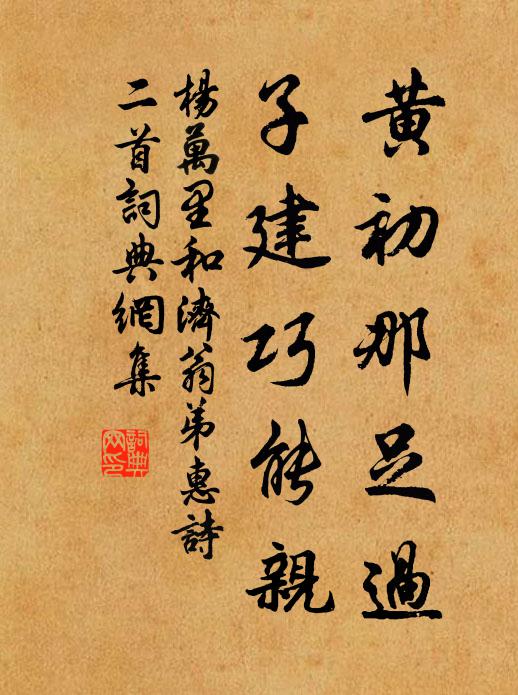 黃初那足過
子建巧能親
楊萬里和濟翁弟惠詩
二首詞典網集
詞典
网印